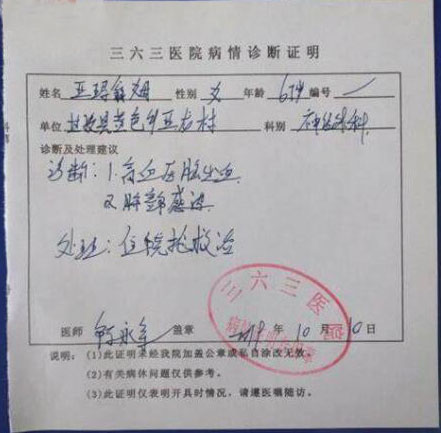 三六三医院病情诊断证明
姓名 亚 姆 性别 女 年龄 67岁 编号 一
单位 甘孜县 色乡亚右村 科别 神经外科
诊断及处理建议
诊断：1.高血压脑出血
2.肺部感染
处理：住院抢救治
三六三医院
医师 永 盖章 2019年10月10日
说明：(1)此证明未经我院加盖公章或私自涂改无效。
(2)有关病休问题仅供参考。
(3)此证明仅表明开具时情况，请遵医嘱随访。